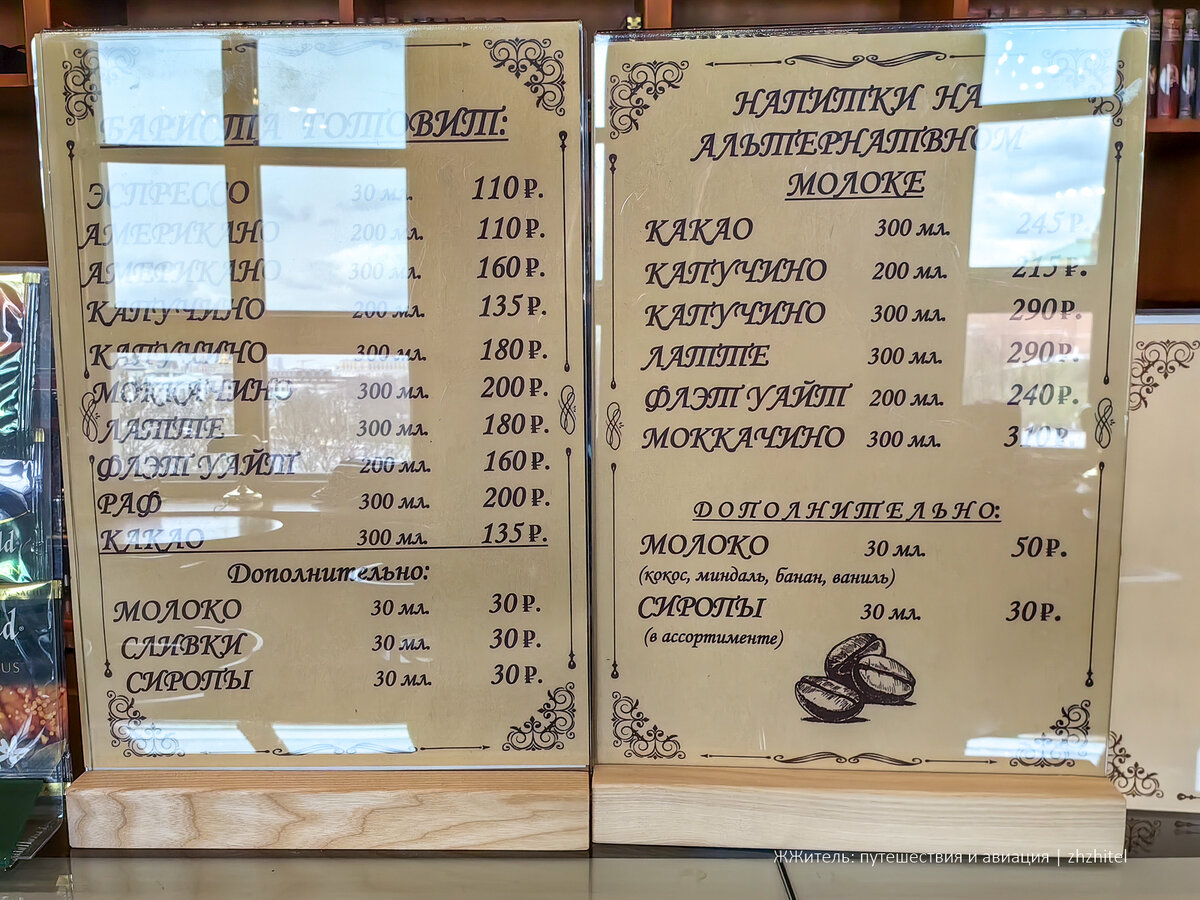 БАРИСТА ГОТОВИТ:
ЭСПРЕССО 30 мл. 110 ₽.
АМЕРИКАНО 200 мл. 110 ₽.
АМЕРИКАНО 300 мл. 160 ₽.
КАПУЧИНО 200 мл. 135 ₽.
КАПУЧИНО 300 мл. 180 ₽.
МОККАЧИНО 300 мл. 200 ₽.
ЛАТТЕ 300 мл. 180 ₽.
ФЛЭТ УАЙТ 200 мл. 160 ₽.
РАФ 300 мл. 200 ₽.
КАКАО 300 мл. 135 ₽.
Дополнительно:
МОЛОКО 30 мл. 30 ₽.
СЛИВКИ 30 мл. 30 ₽.
СИРОПЫ 30 мл. 30 ₽.
НАПИТКИ НА
АЛЬТЕРНАТВНОМ
МОЛОКЕ
КАКАО 300 мл. 245 ₽.
КАПУЧИНО 200 мл. 215 ₽.
КАПУЧИНО 300 мл. 290 ₽.
ЛАТТЕ 300 мл. 290 ₽.
ФЛЭТ УАЙТ 200 мл. 240 ₽.
МОККАЧИНО 300 мл. 310 ₽.
ДОПОЛНИТЕЛЬНО:
МОЛОКО 30 мл. 50 ₽.
(кокос, миндаль, банан, ваниль)
СИРОПЫ 30 мл. 30 ₽.
(в ассортименте)
ЖЖитель: путешествия и авиация | zhzhitel